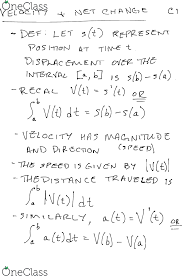 OneClass
VELOCITY & NET CHANGE C1
- DEF: LET s(t) REPRESENT
POSITION AT TIME t
DISPLACEMENT OVER THE
INTERVAL [a,b] IS s(b)-s(a)
- RECAL V(t) = s'(t) OR
∫ₐᵇ V(t) dt = s(b)-s(a)
- VELOCITY HAS MAGNITUDE
AND DIRECTION (SPEED)
- THE SPEED IS GIVEN BY |V(t)|
- THE DISTANCE TRAVELED IS
∫ₐᵇ |V(t)| dt
- SIMILARLY, a(t) = V'(t) OR
∫ₐᵇ a(t) dt = V(b) - V(a)
OneClass